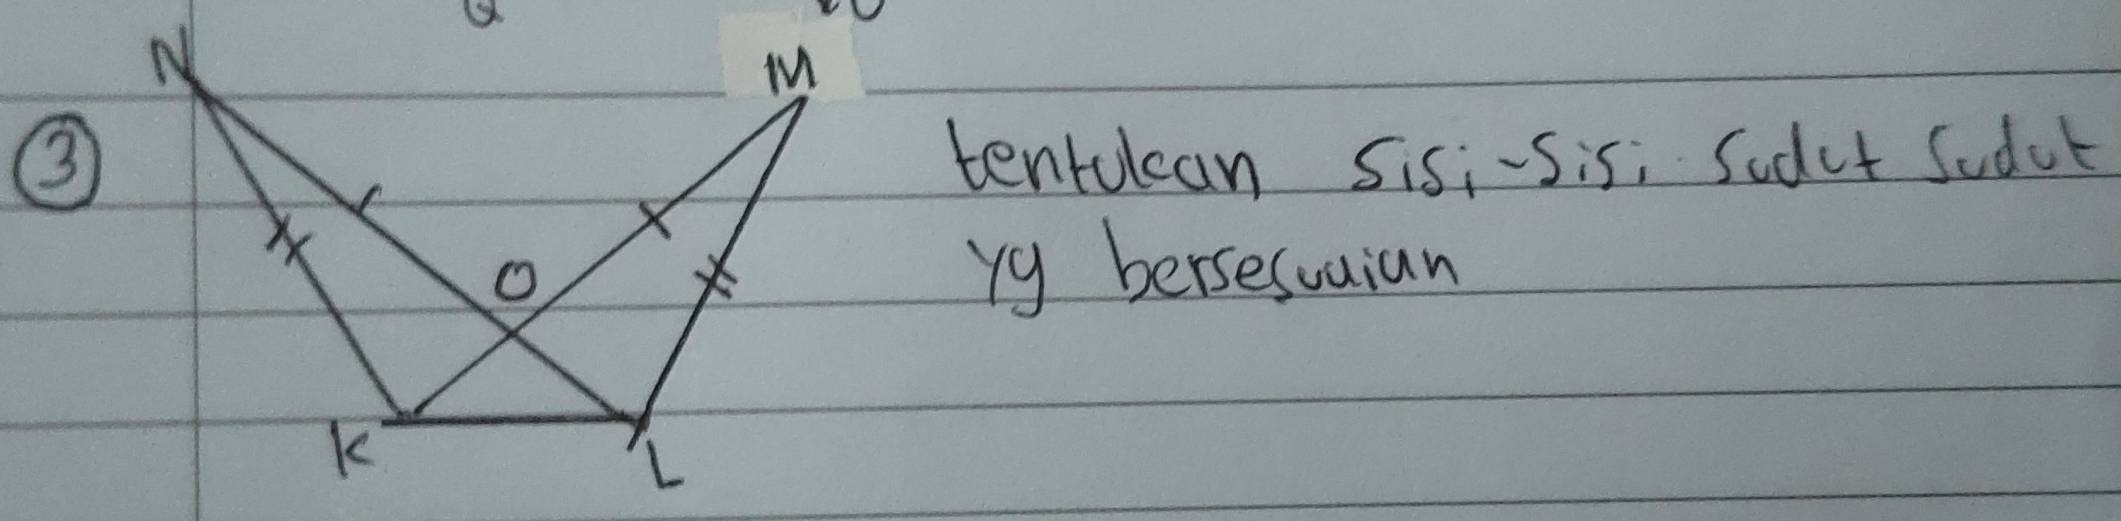 N
M
③
tentukan sisi-sisi sudut sudut
yg bersesuaian
O
K
L